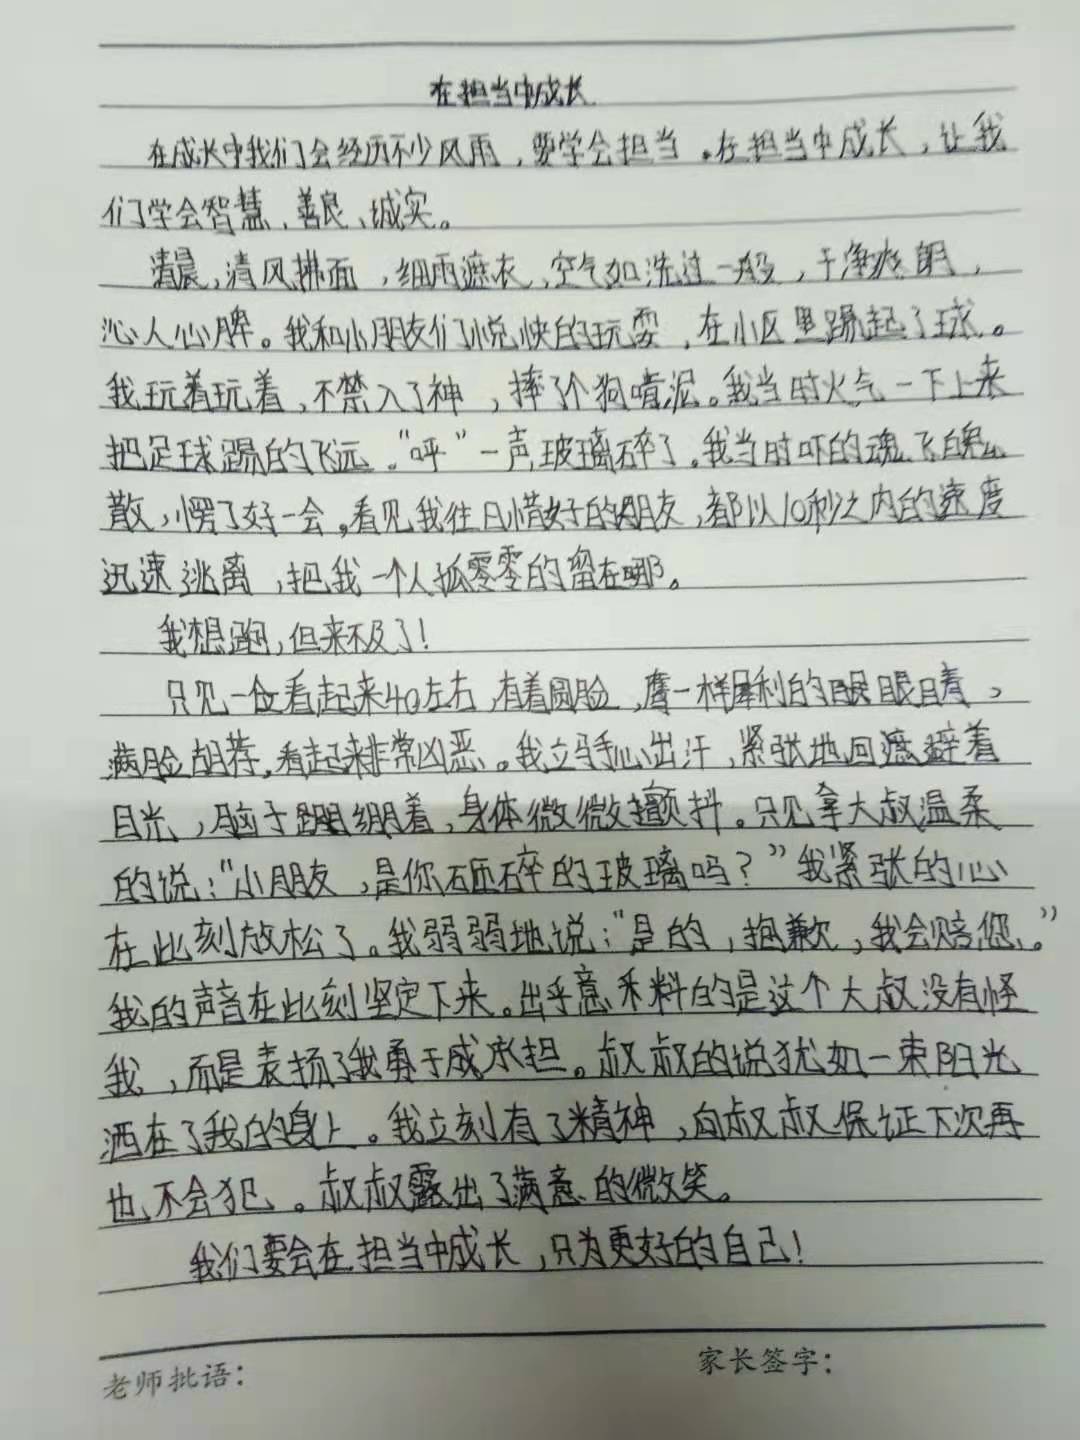 在担当中成长
在成长中我们会经历不少风雨，要学会担当。在担当中成长，让我
们学会智慧、善良、诚实。
清晨，清风拂面，细雨遮衣，空气如洗过一般，干净爽朗，
沁人心脾。我和小朋友们悦快的玩耍，在小区里踢起了球。
我玩着玩着，不禁入了神，摔了个狗啃泥。我当时火气一下上来
把足球踢的飞远。“呯”一声玻璃碎了。我当时吓的魂飞魄
散，愣了好一会。看见我往日惜好的朋友，都以10秒之内的速度
迅速逃离，把我一个人孤零零的留在哪。
我想跑，但来不及了！
只见一位看起来40左右，有着圆脸，鹰一样犀利的眼睛，
满脸胡荐。看起来非常凶恶。我立马手心出汗，紧张地回避着
目光，脑子绷着，身体微微颤抖。只见拿大叔温柔
的说：“小朋友，是你砸碎的玻璃吗？”我紧张的心
在此刻放松了。我弱弱地说：“是的，抱歉，我会赔您。”
我的声音在此刻坚定下来。出乎意料的是这个大叔没有怪
我，而是表扬了我勇于成承担。叔叔的说犹如一束阳光
洒在了我的身上。我立刻有了精神，向叔叔保证下次再
也不会犯。叔叔露出了满意的微笑。
我们要会在担当中成长，只为更好的自己！
老师批语：
家长签字：